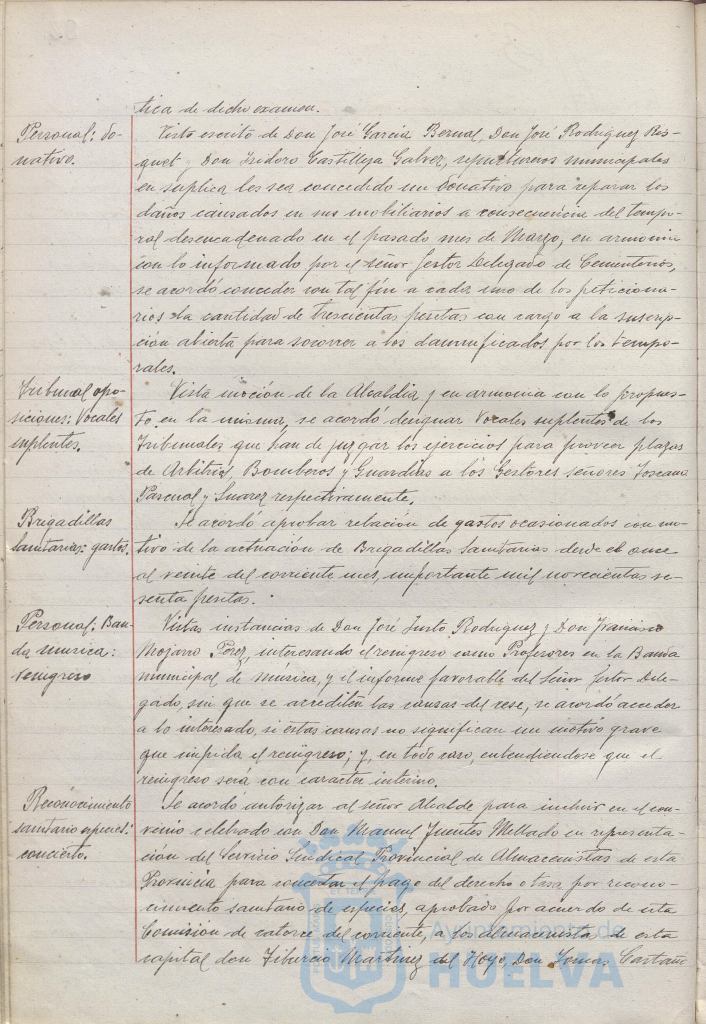 tica de dicho examen.
Personal: do-
nativo.
Visto escrito de Don José Garcia Bernal, Don José Rodriguez Ris-
quet y Don Isidoro Castilleja Galvez, sepultureros municipales
en suplica les sea concedido un donativo para reparar los
daños causados en sus mobiliarios a consecuencia del tempo-
ral desencadenado en el pasado mes de Marzo, en armonia
con lo informado por el señor Gestor Delegado de Cementerios,
se acordó conceder con tal fin a cada uno de los peticiona-
rios la cantidad de trescientas pesetas con cargo a la suscrip-
ción abierta para socorrer a los damnificados por los tempo-
rales.
Tribunal opo-
siciones: Vocales
suplentes.
Vista moción de la Alcaldia y en armonia con lo propues-
to en la misma, se acordó designar Vocales suplentes de los
Tribunales que han de juzgar los ejercicios para proveer plazas
de Arbitrios, Bomberos y Guardias a los Gestores señores Toscano
Pascual y Suarez respectivamente.
Brigadillas
Sanitarias: gastos.
Se acordó aprobar relación de gastos ocasionados con mo-
tivo de la actuación de Brigadillas Sanitarias desde el once
al veinte del corriente mes, importante mil novecientas se-
senta pesetas.
Personal: Ban-
da musica:
reingreso
Vistas instancias de Don José Justo Rodriguez y Don Francisco
Mojarro Perez, interesando el reingreso como Profesores en la Banda
municipal de música, y el informe favorable del Señor Gestor Dele-
gado, sin que se acrediten las causas del cese, se acordó acceder
a lo interesado, si éstas causas no significan un motivo grave
que impida el reingreso; y, en todo caso, entendiendose que el
reingreso será con caracter interino.
Reconocimiento
sanitario especies:
concierto.
Se acordó autorizar al señor Alcalde para incluir en el con-
venio celebrado con Don Manuel Fuentes Mellado en representa-
ción del Servicio Sindical Provincial de Almacenistas de esta
Provincia para concertar el pago del derecho o tasa por recono-
cimiento sanitario de especies, aprobado por acuerdo de esta
Comisión de catorce del corriente, a los almacenistas de esta
capital don Tiburcio Martinez del Hoyo, Don Tomas Castaño
Ayuntamiento de
HUELVA